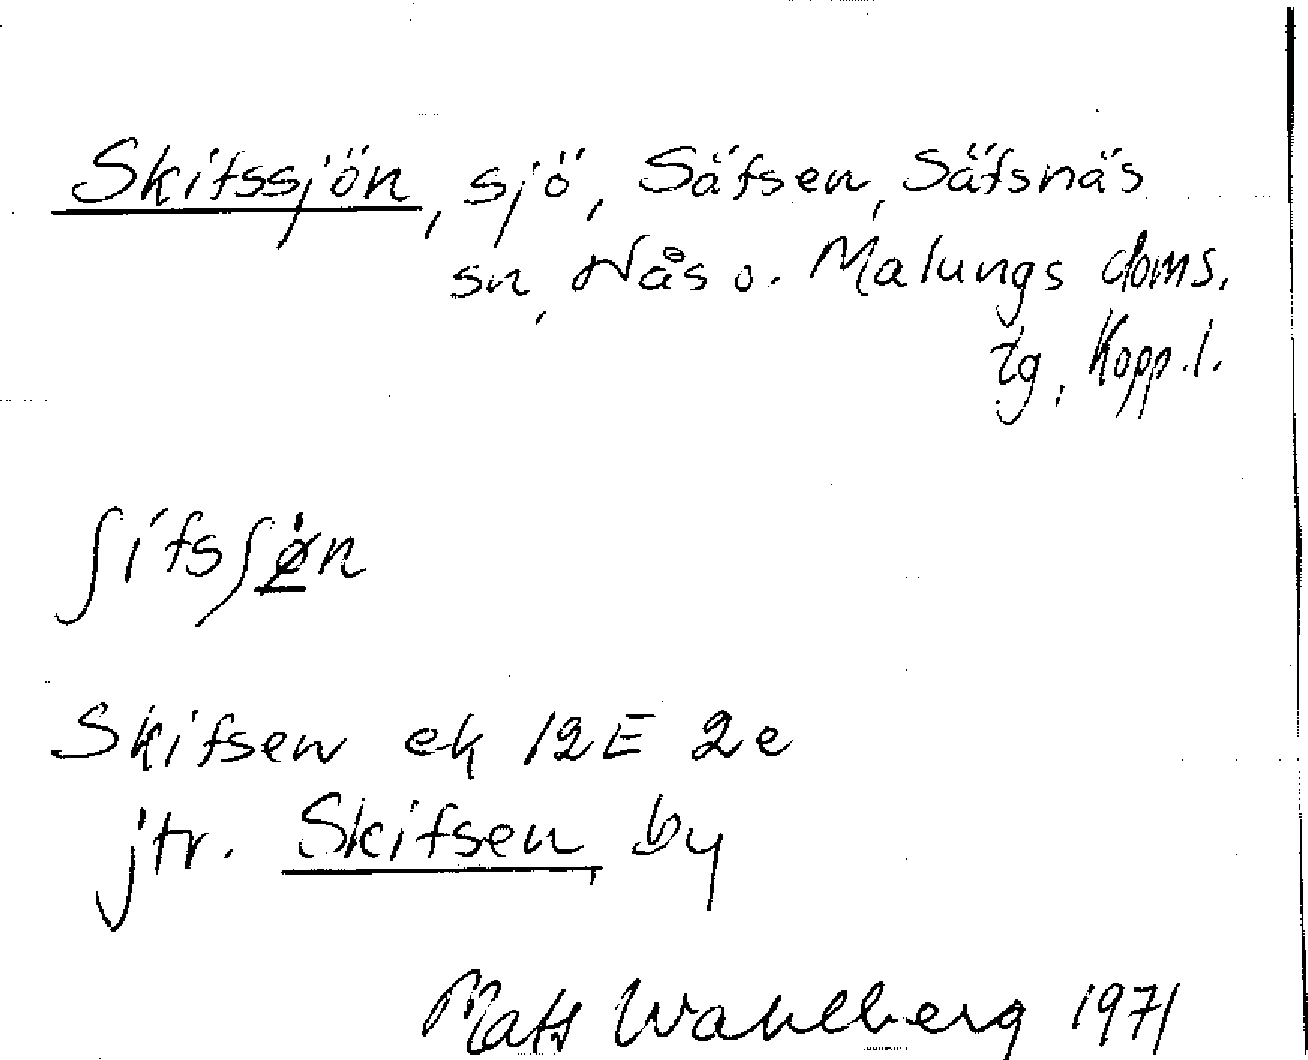 Skifssjön, sjö, Säfsen, Säfsnäs
sn, Nås o. Malungs doms.
tg, Kopp.l.
ʃifsʃøn
Skifsen ek 12E 2e
jfr. Skifsen, by
Mats Wahlberg 1971